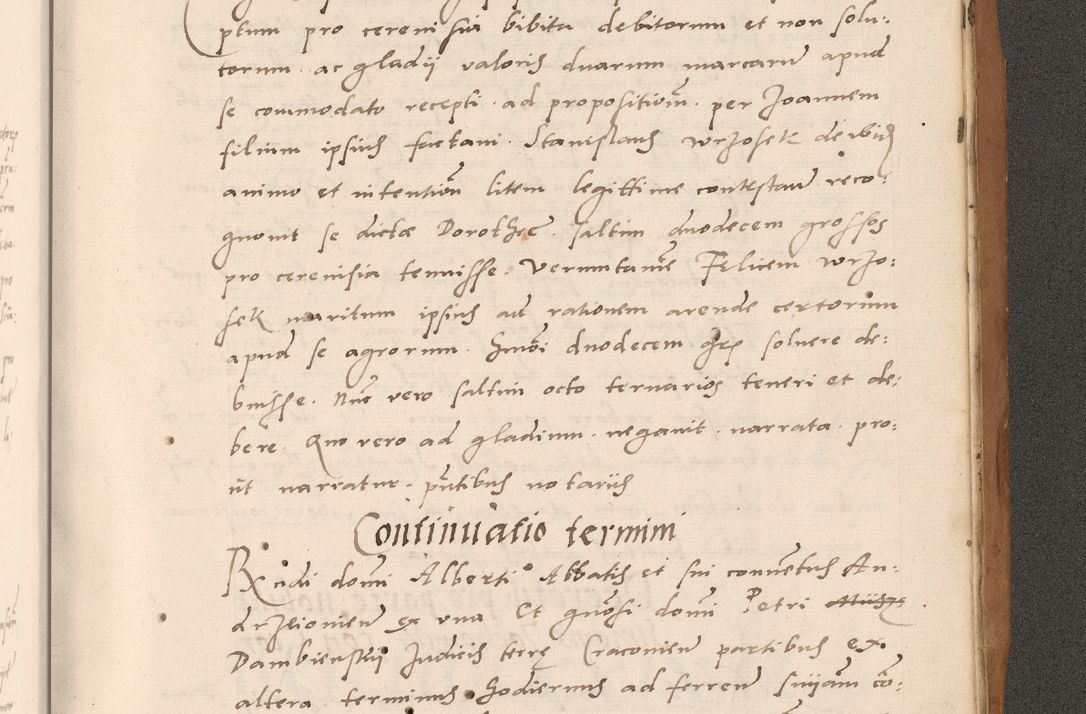 ptum pro cerevisia bibita debitorum et non solu:
torum ac gladii valoris duarum marcarum apud
se commodato recepti ad propositiom̄ per Joannem
filium ipsius factam Stanislaus Wrzosek de
animo et intentiōn litem legittime contestan̄ reco:
gnovit se dictae Dorothee saltim duodecem grossos
pro cerevisia tenuisse. Veruntamē Felicem Wrzo:
sek maritum ipsius ad rationem arende certorum
apud se agrorum duodecem solvere de:
buisse. Nūc vero saltim octo ternarios teneri et de:
bere. Quo vero ad gladium negavit narrata pro:
ut narratur. pn̄tibus notariis
Continuatio termini
Rx̄ndi domī Alberti Abbatis et sui conven̄tus An:
drzeiovien̄ ex una Et gnōsi domī Petri
Dambienskii Judicis terre Cracovien̄ partibus ex
altera terminus hodiernus ad ferren̄ sniām cō: